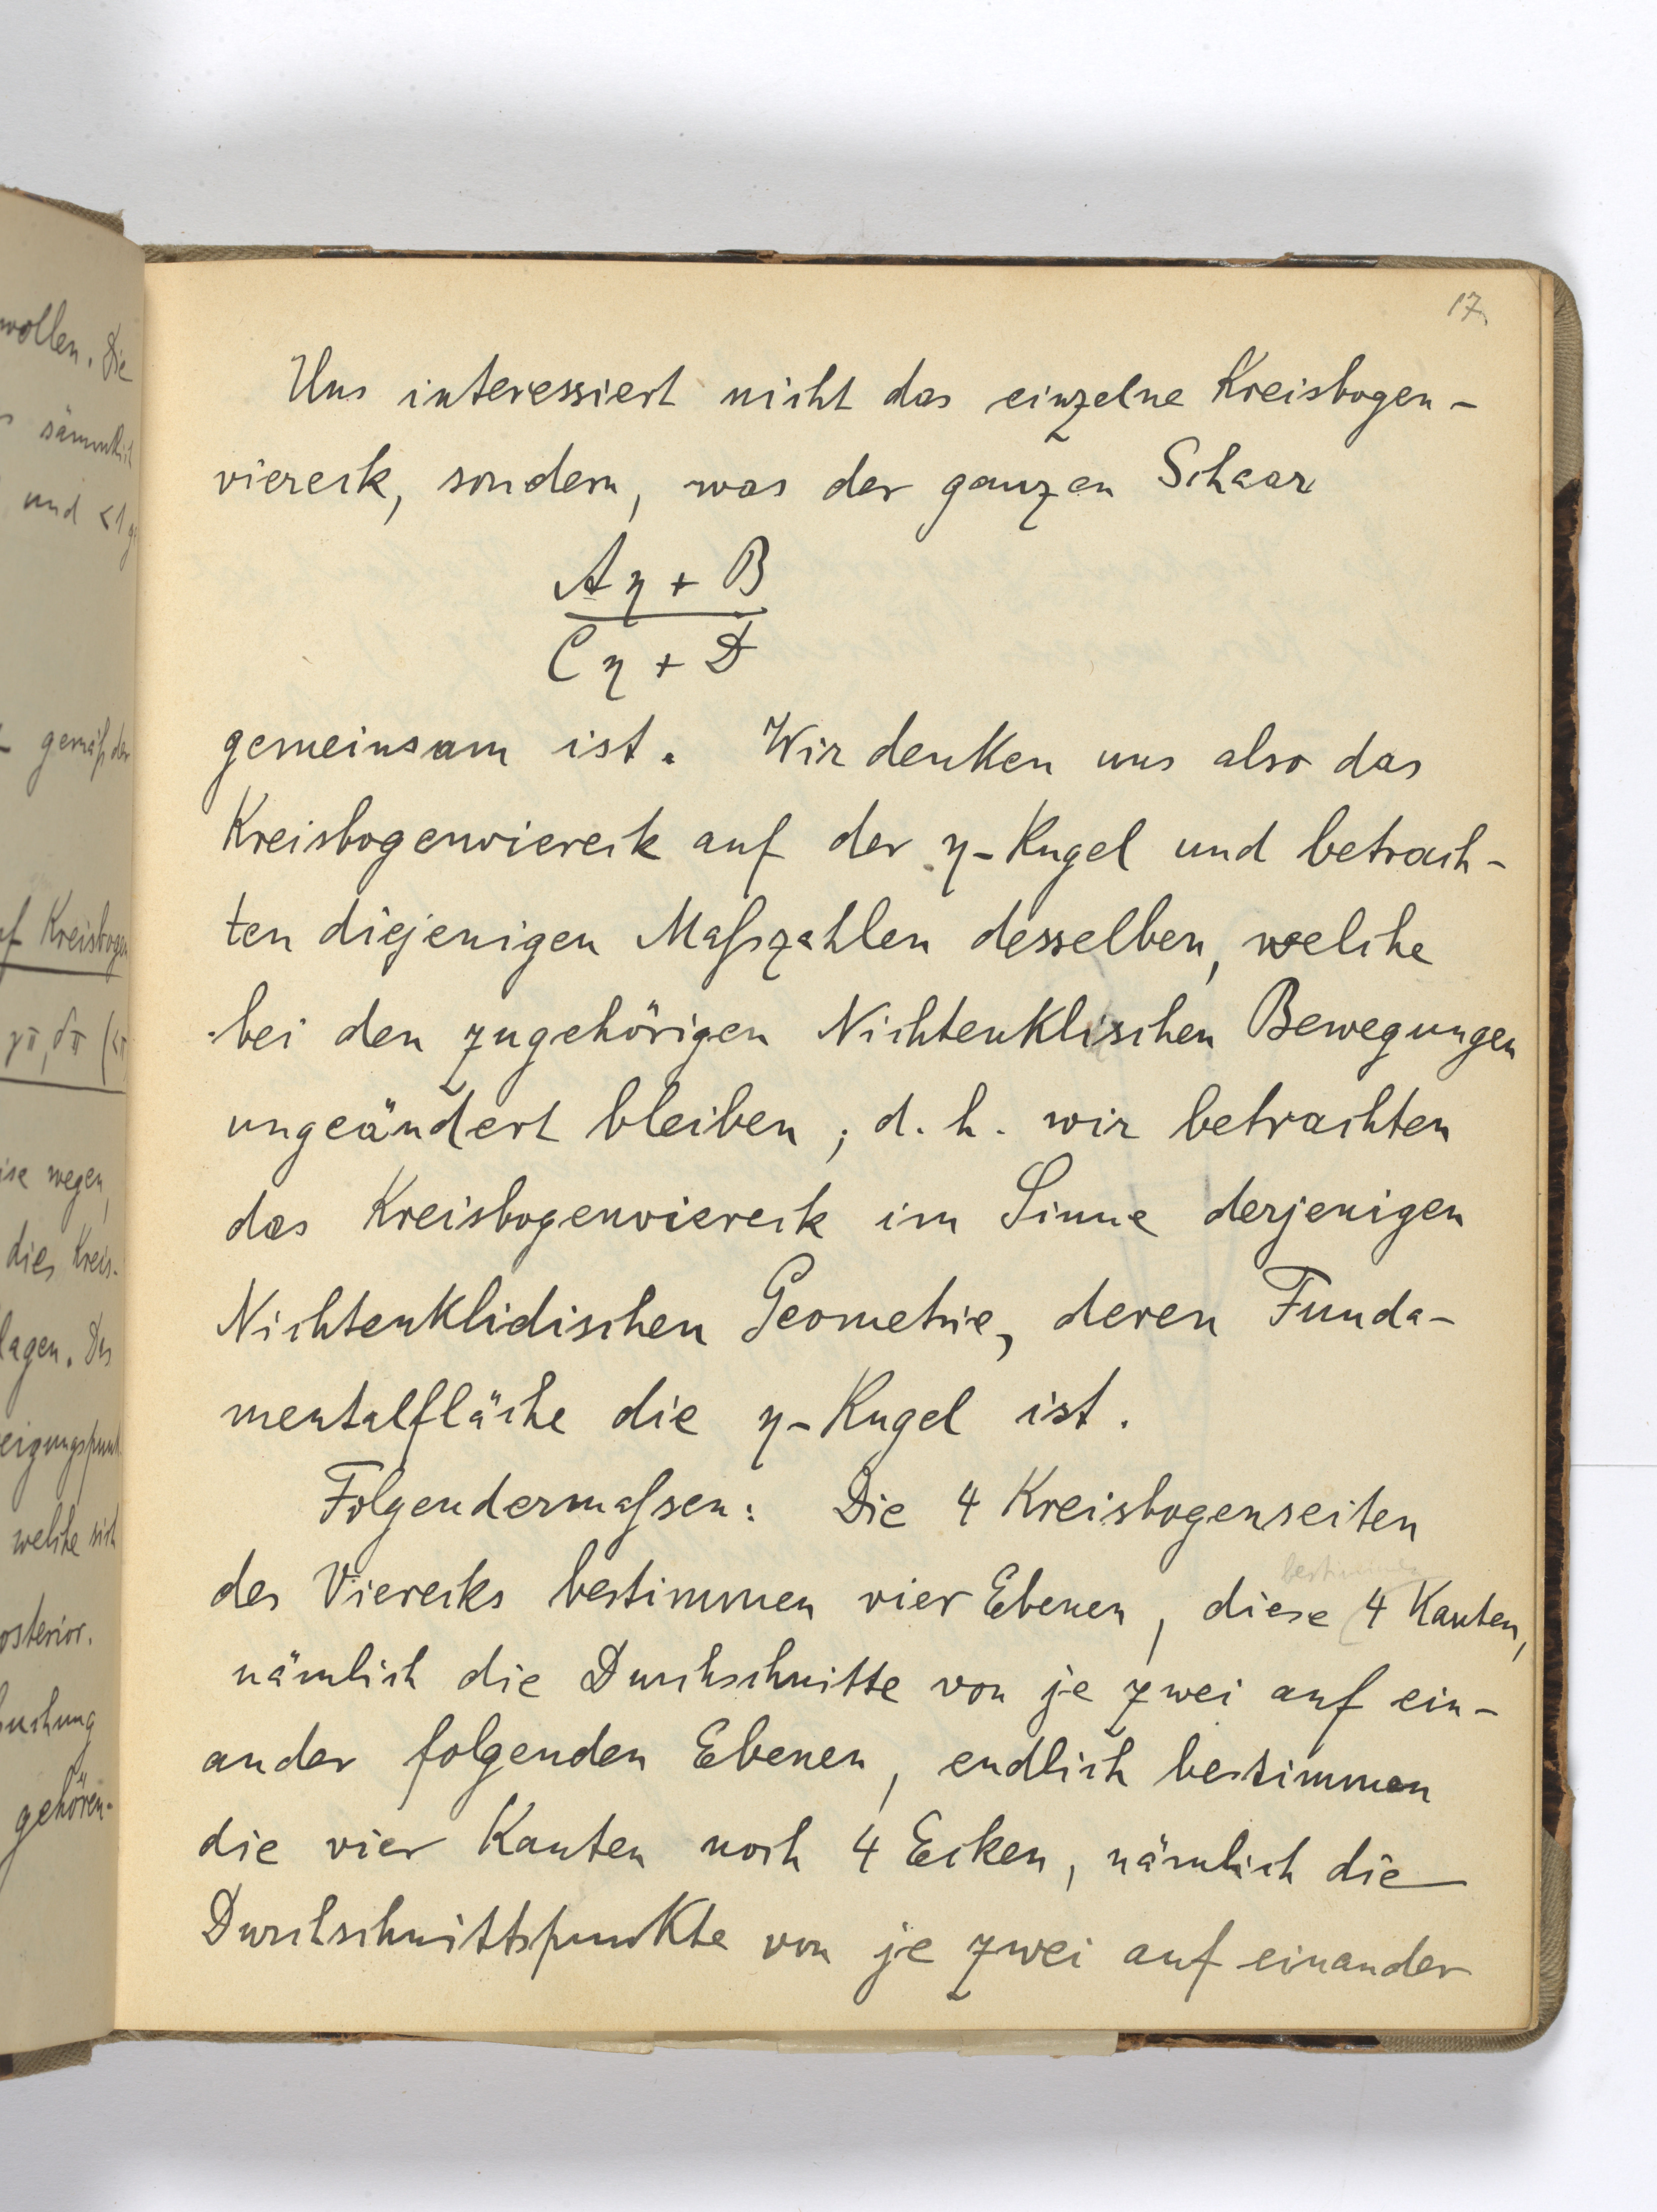 wollen. Die
sämmtlich
und <1
gemäß der
Kreisbogen
γπ, δπ
wegen,
dies Kreis-
welche sich
gehören.
17.
Uns interessiert nicht das einzelne Kreisbogen-
viereck, sondern, was der ganzen Schaar
Aη + B
Cη + D
gemeinsam ist. Wir denken uns also das
Kreisbogenviereck auf der η-Kugel und betrach-
ten diejenigen Maßzahlen desselben, welche
bei den zugehörigen Nichteuklischen Bewegungen
ungeändert bleiben, d. h. wir betrachten
das Kreisbogenviereck im Sinne derjenigen
Nichteuklidischen Geometrie, deren Funda-
mentalfläche die η-Kugel ist.
Folgendermaßen: Die 4 Kreisbogenseiten
bestimmen
des Vierecks bestimmen vier Ebenen, diese 4 Kanten,
nämlich die Durchschnitte von je zwei auf ein-
ander folgenden Ebenen, endlich bestimmen
die vier Kanten noch 4 Ecken, nämlich die
Durchschnittspunkte von je zwei auf einander